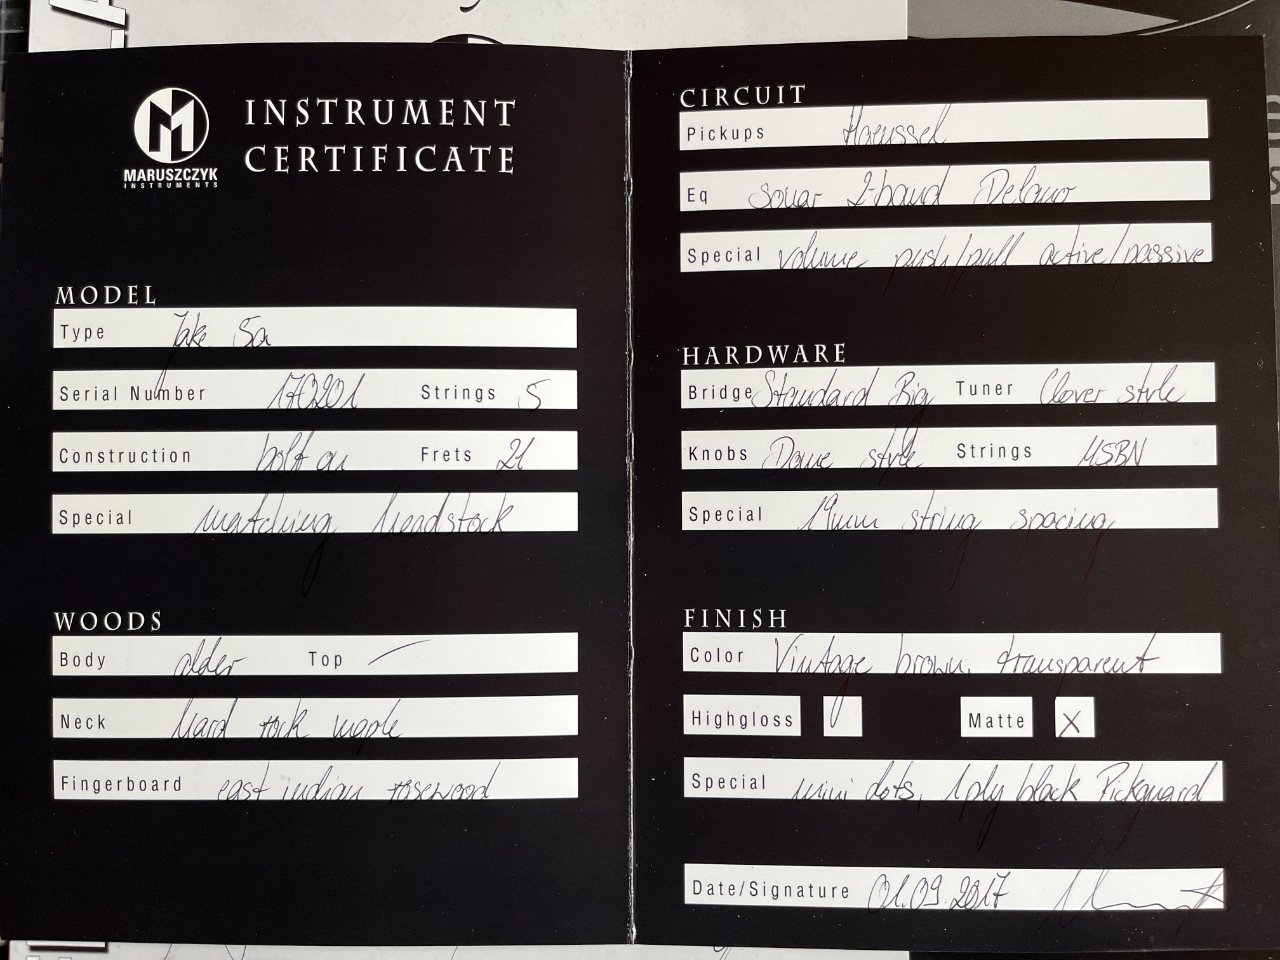 MARUSZCZYK
INSTRUMENTS
INSTRUMENT
CERTIFICATE
MODEL
Type Jake 5a
Serial Number 170201 Strings 5
Construction bolt on Frets 21
Special matching headstock
WOODS
Body alder Top –
Neck hard rock maple
Fingerboard east indian rosewood
CIRCUIT
Pickups Haeussel
Eq sonar 2-band Delano
Special volume push/pull active/passive
HARDWARE
Bridge Standard Big Tuner Clover style
Knobs Dome style Strings MSBN
Special 19mm string spacing
FINISH
Color Vintage brown, transparent
Highgloss Matte X
Special mini dots, 1ply black Pickguard
Date/Signature 01.09.2017